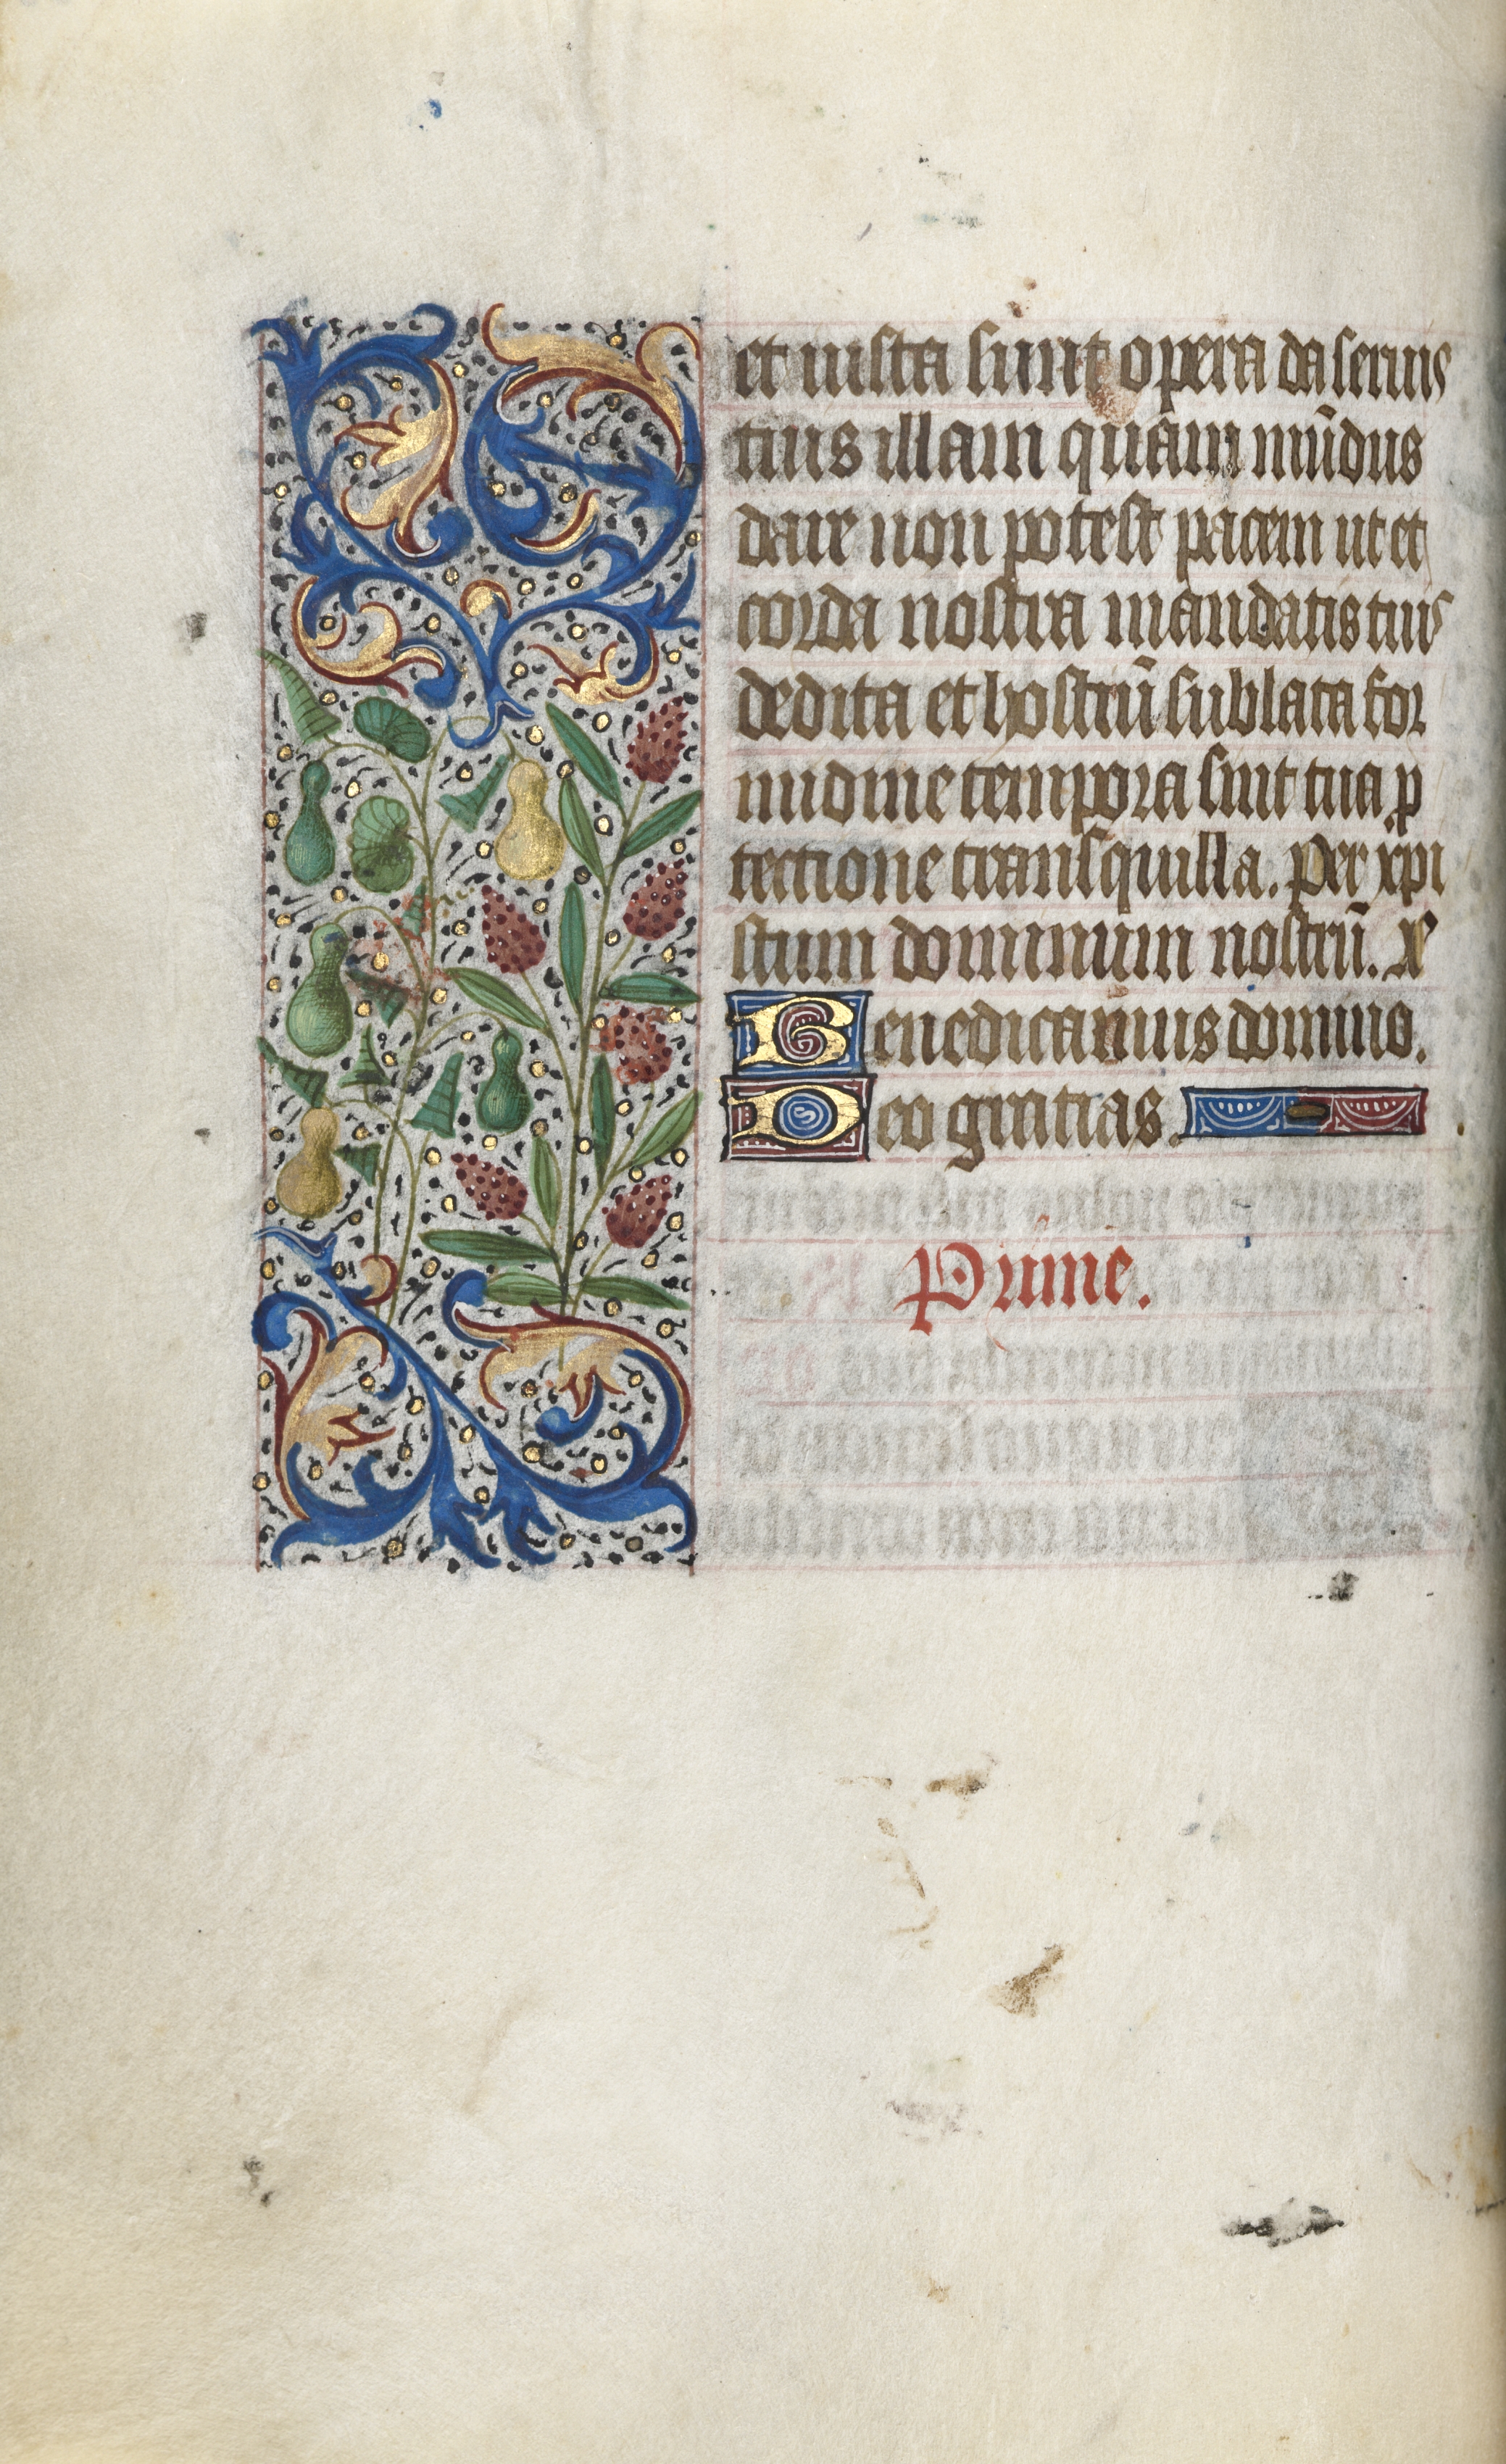 et iusta sunt opera da seruis
tuis illam quam mũdus
dare non potest pacem ut et
corda nostra mandatis tuis
dedita et hostiũ sublata for
midine tempora sint tua p
tectione transquilla. Per xpi
stum dominum nostrũ. 
Benedicamus domino.
Deo gratias.
Prime.